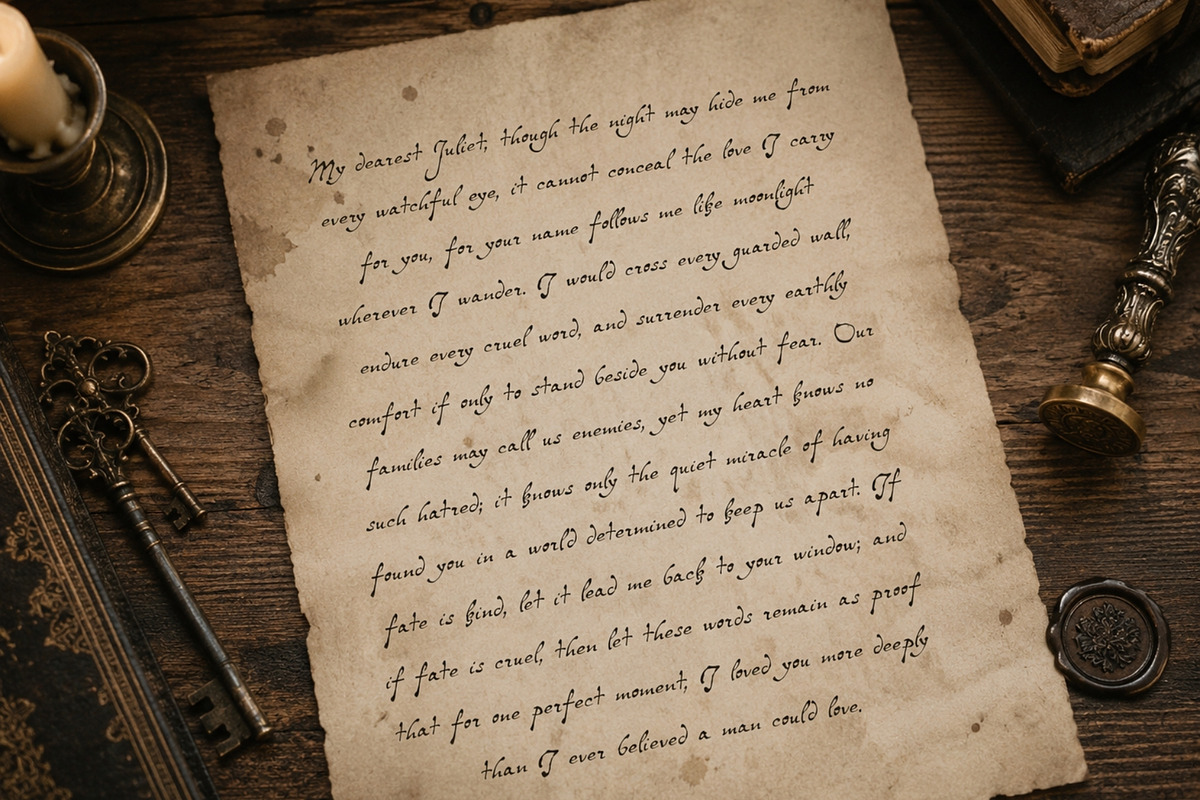 My dearest Juliet, though the night may hide me from
every watchful eye, it cannot conceal the love I carry
for you, for your name follows me like moonlight
wherever I wander. I would cross every guarded wall,
endure every cruel word, and surrender every earthly
comfort if only to stand beside you without fear. Our
families may call us enemies, yet my heart knows no
such hatred; it knows only the quiet miracle of having
found you in a world determined to keep us apart. If
fate is kind, let it lead me back to your window; and
if fate is cruel, then let these words remain as proof
that for one perfect moment, I loved you more deeply
than I ever believed a man could love.